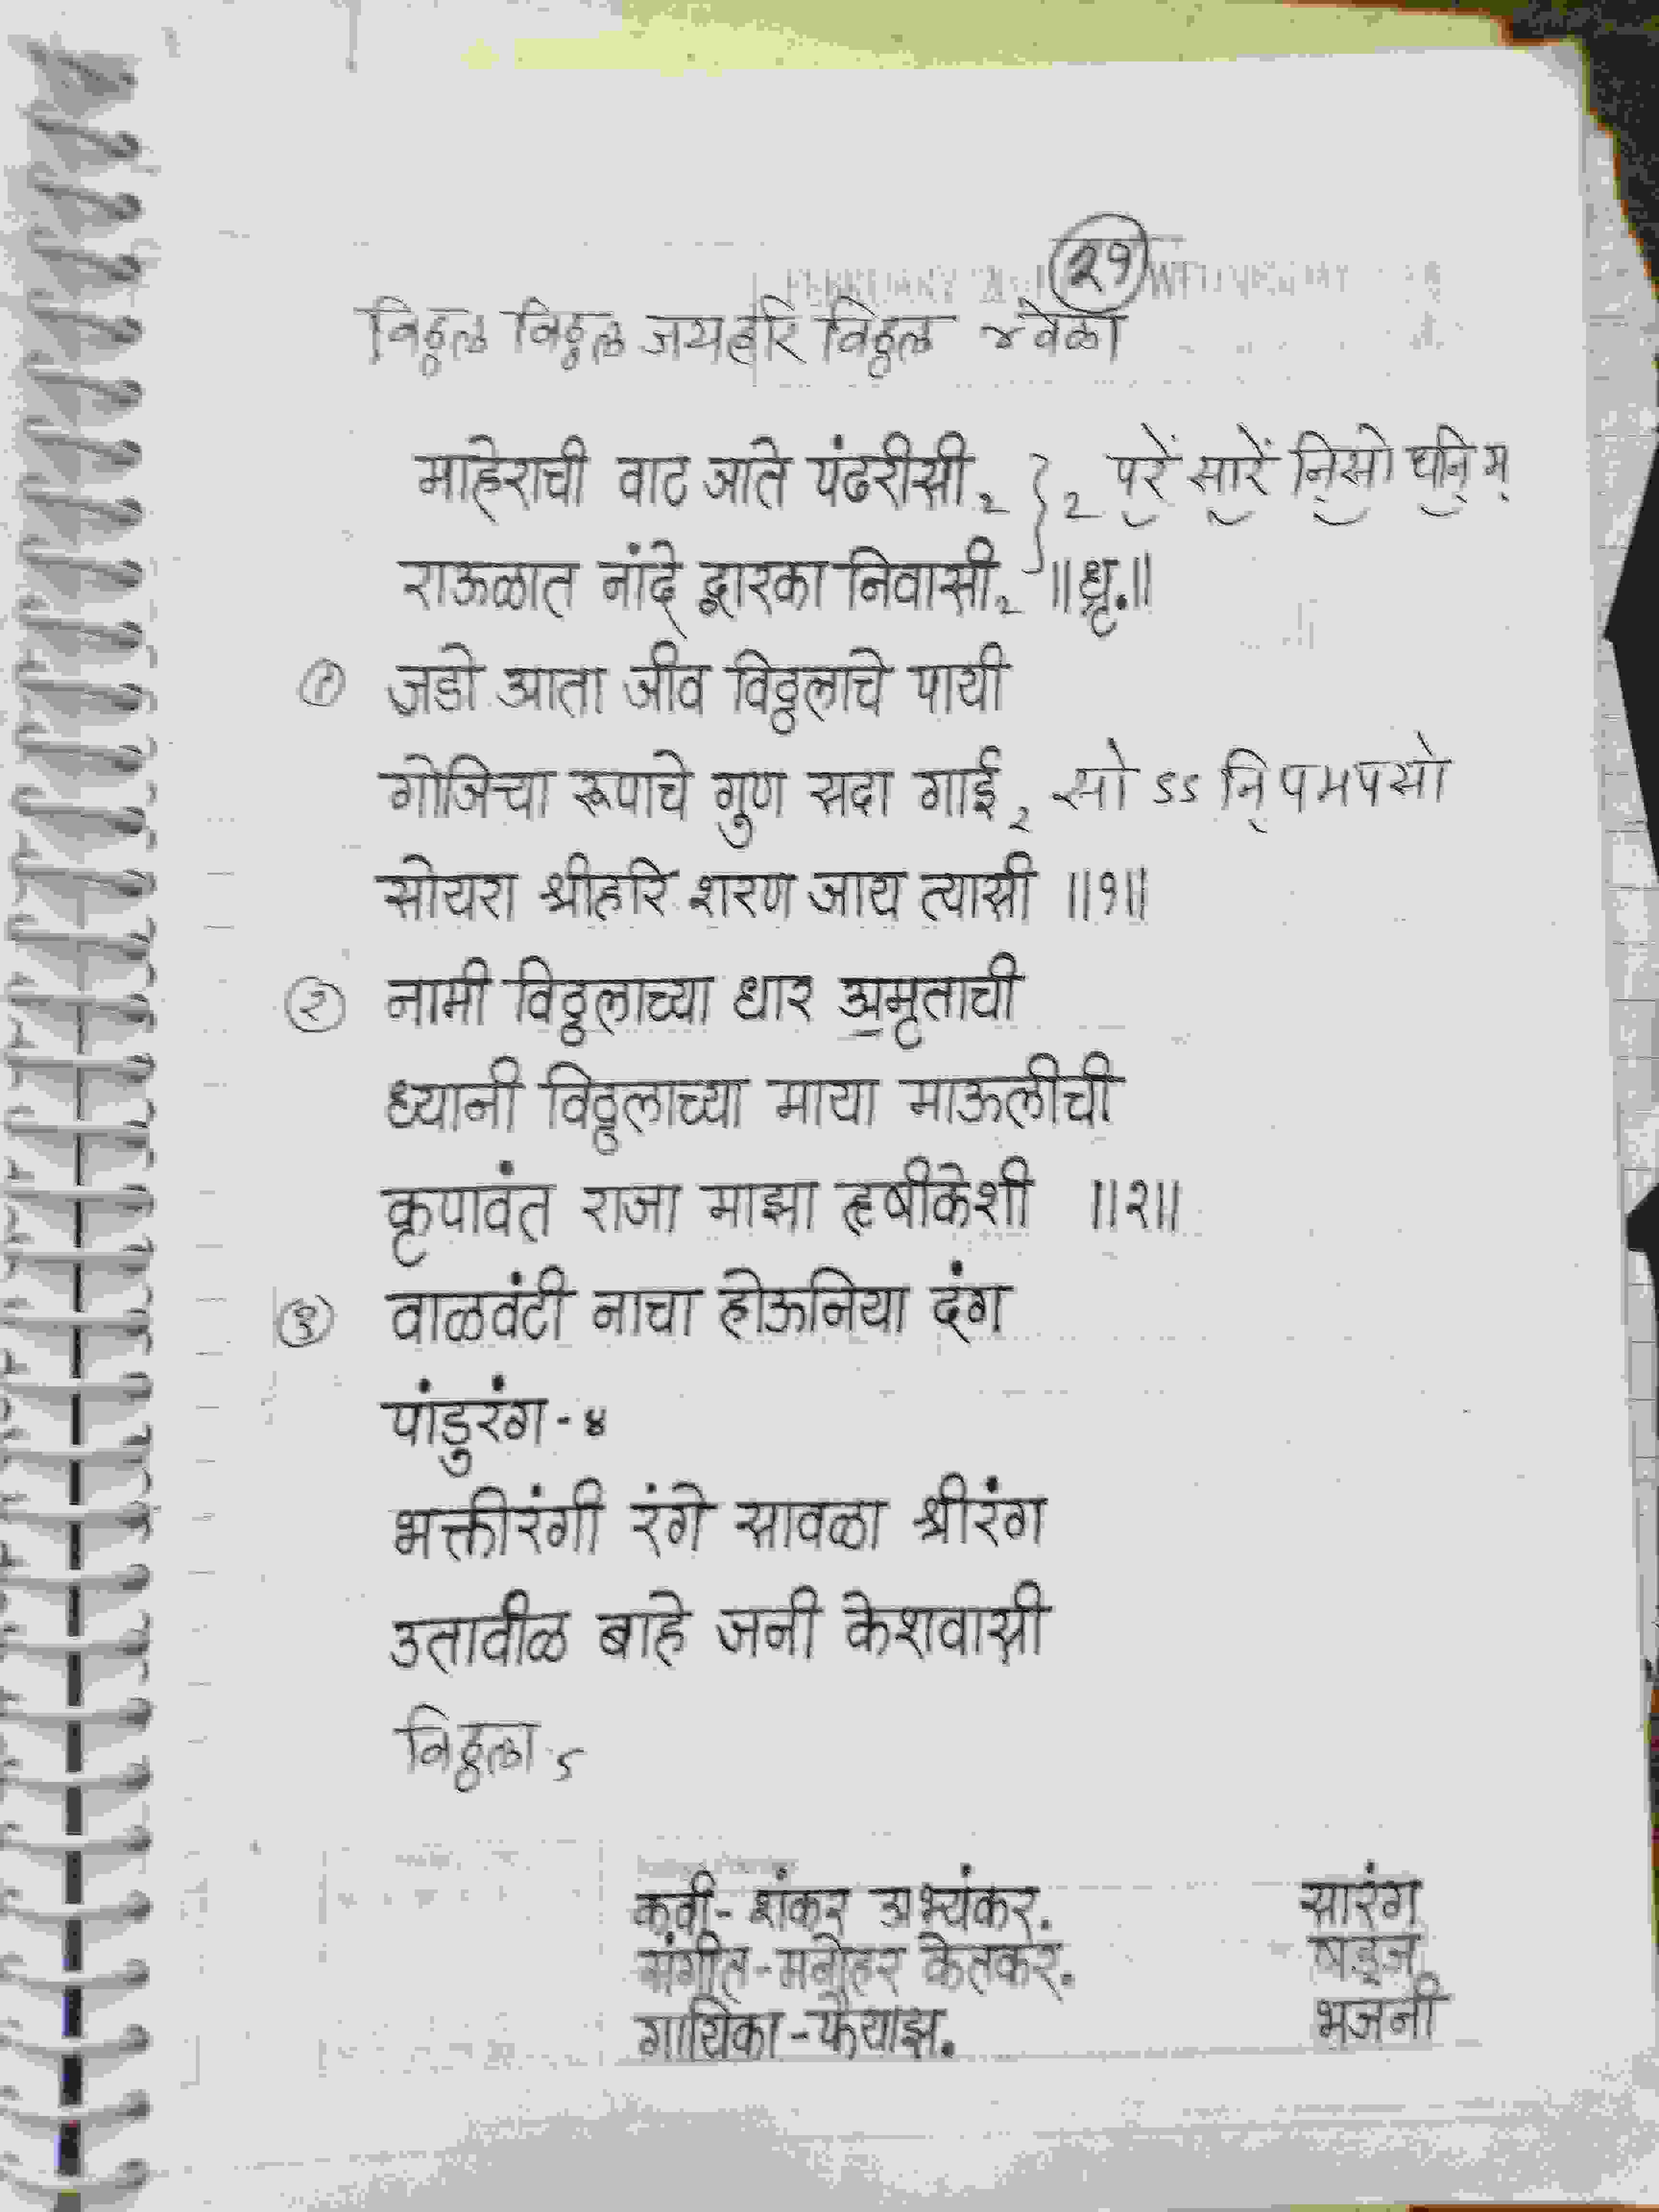 २१
विठ्ठल विठ्ठल जयहरि विठ्ठल ४ वेळा
माहेराची वाट जाते पंढरीसी २ } २ परें सारें नि॒सां धनि॒ म
राऊळात नांदे द्वारका निवासी २ ॥धृ.॥
१ जडो आता जीव विठ्ठलाचे पायी
गोजिऱ्या रूपाचे गुण सदा गाई २ सां ऽऽ नि॒ प म प सां
सोयरा श्रीहरि शरण जाय त्यासी ॥१॥
२ नामी विठ्ठलाच्या धार अमृताची
ध्यानी विठ्ठलाच्या माया माऊलीची
कृपावंत राजा माझा हृषीकेशी ॥२॥
३ वाळवंटी नाचा होऊनिया दंग
पांडुरंग - ४
भक्तीरंगी रंगे सावळा श्रीरंग
उतावीळ बाहे जनी केशवासी
विठ्ठला ऽ
कवी - शंकर अभ्यंकर. सारंग
संगीत - मनोहर केतकर.
गायिका - फैयाझ. भजनी